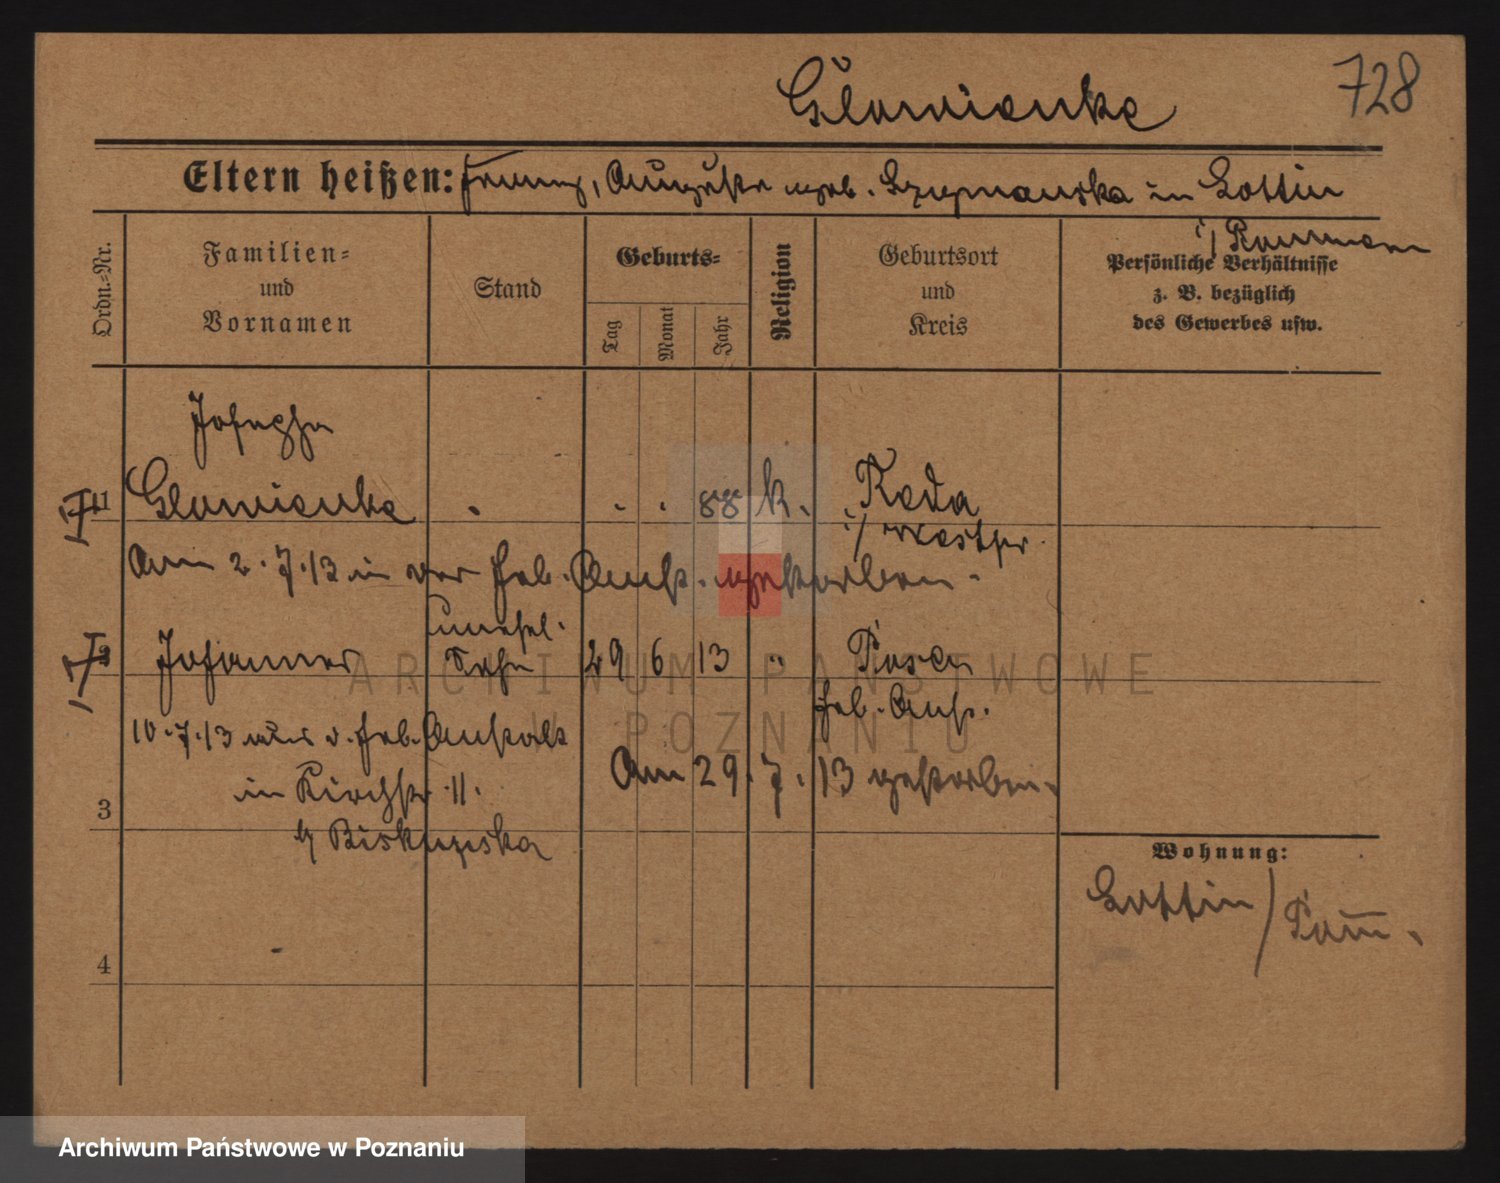 728
Glowienke
Eltern heißen: Franz, Auguste geb. Szymanska in Lottin
i/ Pommern
Ordn.-Nr.
Familien- und Vornamen
Stand
Geburts-
Tag
Monat
Jahr
Religion
Geburtsort und Kreis
Persönliche Verhältnisse
z. B. bezüglich
des Gewerbes usw.
Josepha
1 Glowienke . . . 88 k. Roda
i/ Westpr.
Am 2.7.13 in der Heb. Anst. gestorben.
unehel.
2 Johannes Sohn 29 6 13 " Posen
Heb. Anst.
10.7.13 aus d. Heb. Anstalt
in Kirchstr. 11.
Am 29.7.13 gestorben.
3
b/ Biskupska
Wohnung:
Lottin / Pom.
4
ARCHIWUM PAŃSTWOWE
W POZNANIU
Archiwum Państwowe w Poznaniu